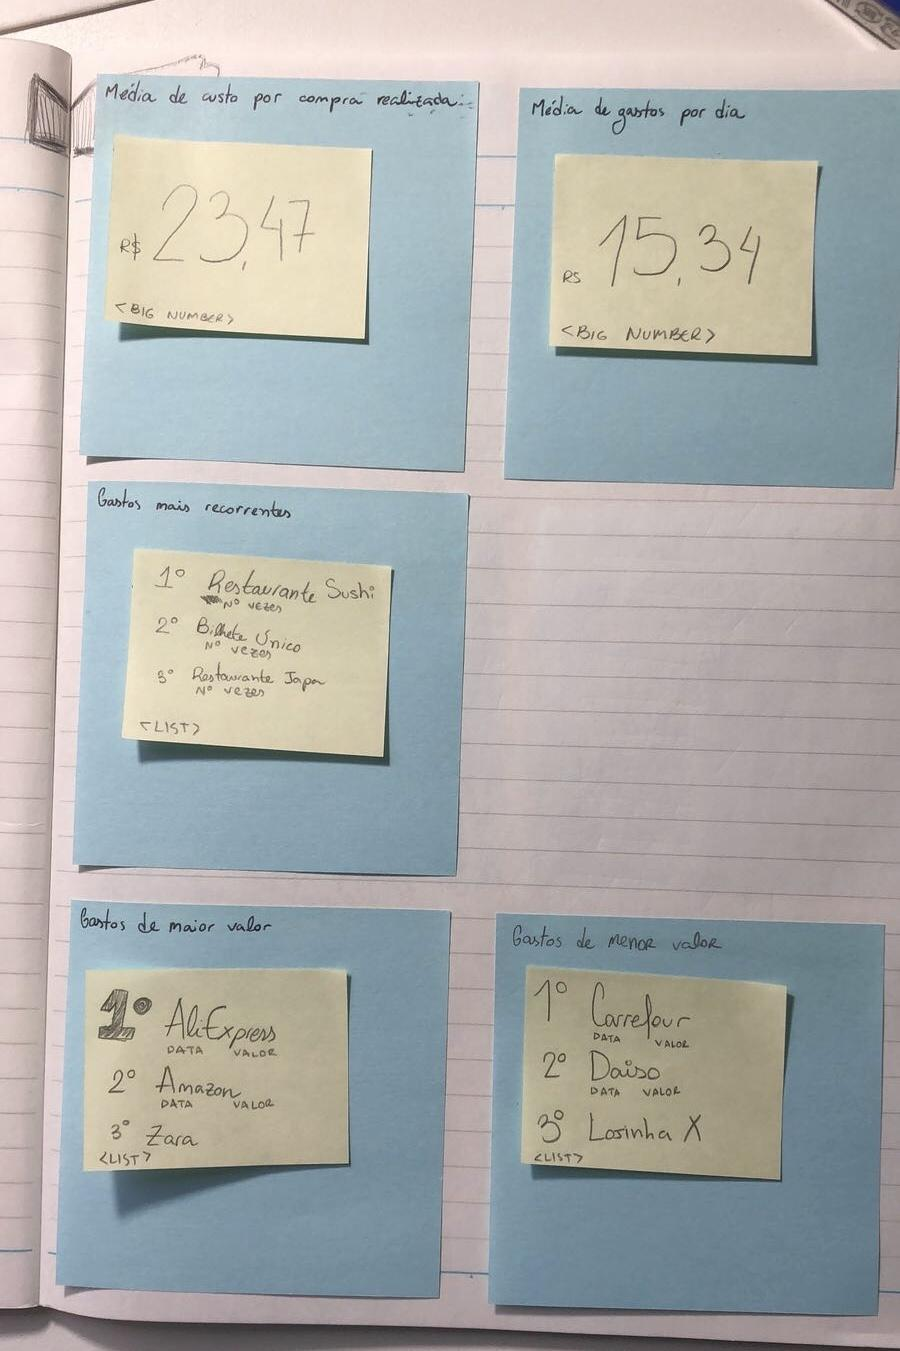 Média de custo por compra realizada:
R$ 23,47
<BIG NUMBER>
Média de gastos por dia
R$ 15,34
<BIG NUMBER>
Gastos mais recorrentes
1º Restaurante Sushi
Nº VEZES
2º Bilhete Único
Nº VEZES
3º Restaurante Japa
Nº VEZES
<LIST>
Gastos de maior valor
1º AliExpress
DATA VALOR
2º Amazon
DATA VALOR
3º Zara
<LIST>
Gastos de menor valor
1º Carrefour
DATA VALOR
2º Daiso
DATA VALOR
3º Lojinha X
<LIST>